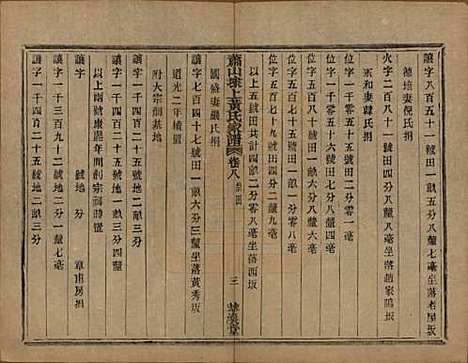 讓字八百五十一號田一畝六分八釐一毫坐落老屋坂
德培妻倪氏捐
火字二千四百二十一號田四分八釐八毫坐落趙家塢坂
正和妻韓氏捐
位字一千零五十五號田一畝
位字一千零五十六號田八分八釐四毫
位字五百七十八號田一畝六分八毫
位字五百七十九號田四分二釐九毫
以上五號田共計四畝二分零八毫坐落西坂
蕭山埭上黃氏家譜 卷八 祭田
三
華演堂
國盛妻嚴氏捐
讓字七百四十七號田一畝六分三釐坐落黃秀坂
道光二年續置
附大宗祠基地
讓字一千四百二十四號地二畝二分
讓字一千四百二十五號地二分
以上兩號康熙年間創宗祠時捐
讓字一千三百九十二號地一畝六分三釐四毫
讓字一千三百九十二號地一分一釐七毫
號地 分 章甫房捐
讓字一千四百二十五號地二畝三分